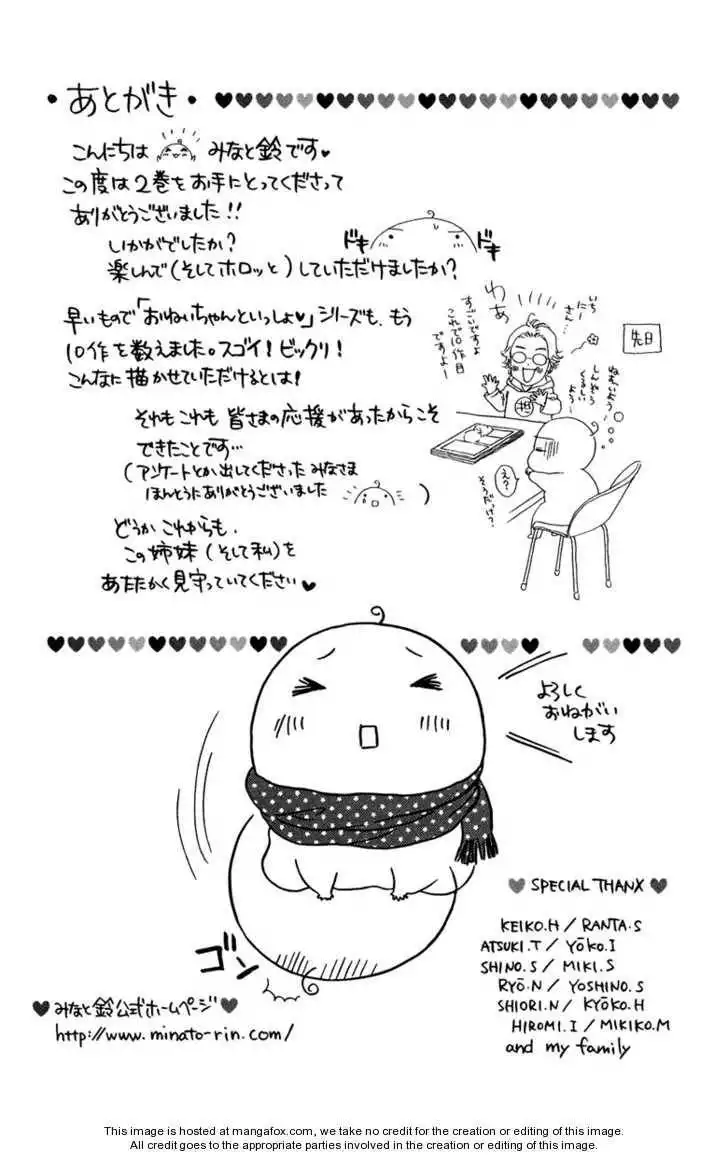 ・あとがき・
こんにちは みなと鈴です♥
この度は2巻をお手にとってくださって
ありがとうございました!!
いかがでしたか?
楽しんで(そしてホロッと)していただけましたか?
ドキ
ドキ
早いもので「おねいちゃんといっしょ♥」シリーズも、もう
10作を数えました。スゴイ!ビックリ!
こんなに描かせていただけるとは!
それもこれも 皆さまの応援があったからこそ
できたことです…
(アンケートとか出してくださった みなさま
ほんとうにありがとうございました )
どうか これからも、
この姉妹(そして私)を
あたたかく見守っていてください♥
先日
いち
にー
さん…
わあ
すごいですよ
これで10作目
ですよー
担
え?
そうだっけ?
よろしく
おねがい
します
ゴン
♥ SPECIAL THANX ♥
KEIKO.H / RANTA.S
ATSUKI.T / YŌKO.I
SHINO.S / MIKI.S
RYŌ.N / YOSHINO.S
SHIORI.N / KYŌKO.H
HIROMI.I / MIKIKO.M
and my family
♥ みなと鈴公式ホームページ ♥
http://www.minato-rin.com/
This image is hosted at mangafox.com, we take no credit for the creation or editing of this image.
All credit goes to the appropriate parties involved in the creation or editing of this image.